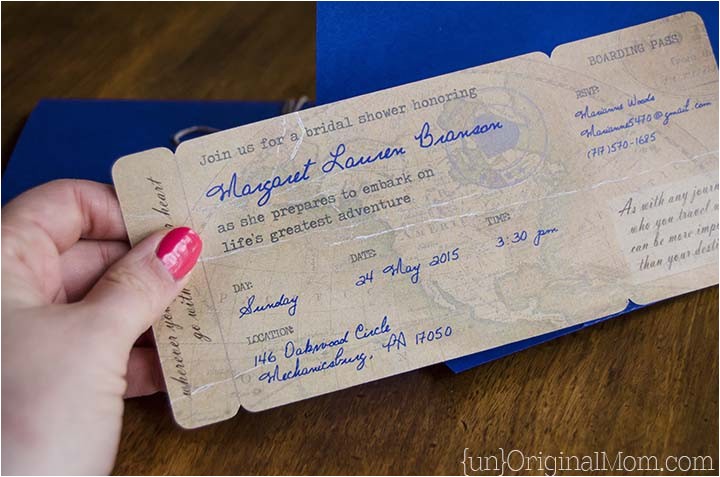 wherever you go
go with heart
Join us for a bridal shower honoring
Margaret Lauren Branson
as she prepares to embark on
life's greatest adventure
DAY:
Sunday
DATE:
24 May 2015
TIME:
3:30 pm
LOCATION:
146 Oakwood Circle
Mechanicsburg, PA 17050
BOARDING PASS
RSVP:
Marianne Woods
Marianne5470@gmail.com
(717)570-1685
As with any journey
who you travel
can be more
than your
{un}OriginalMom.com